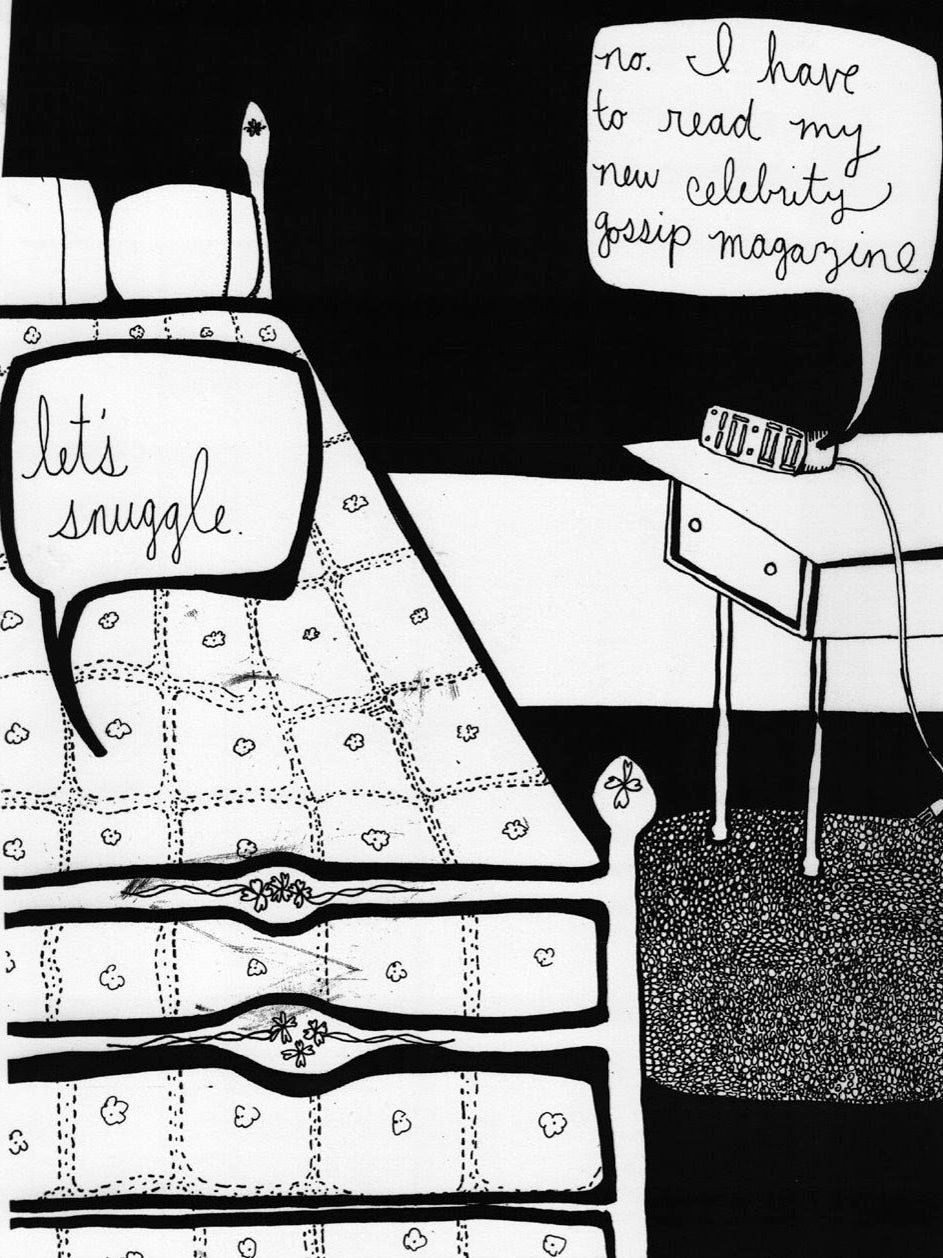 no. I have
to read my
new celebrity
gossip magazine.
let's
snuggle.